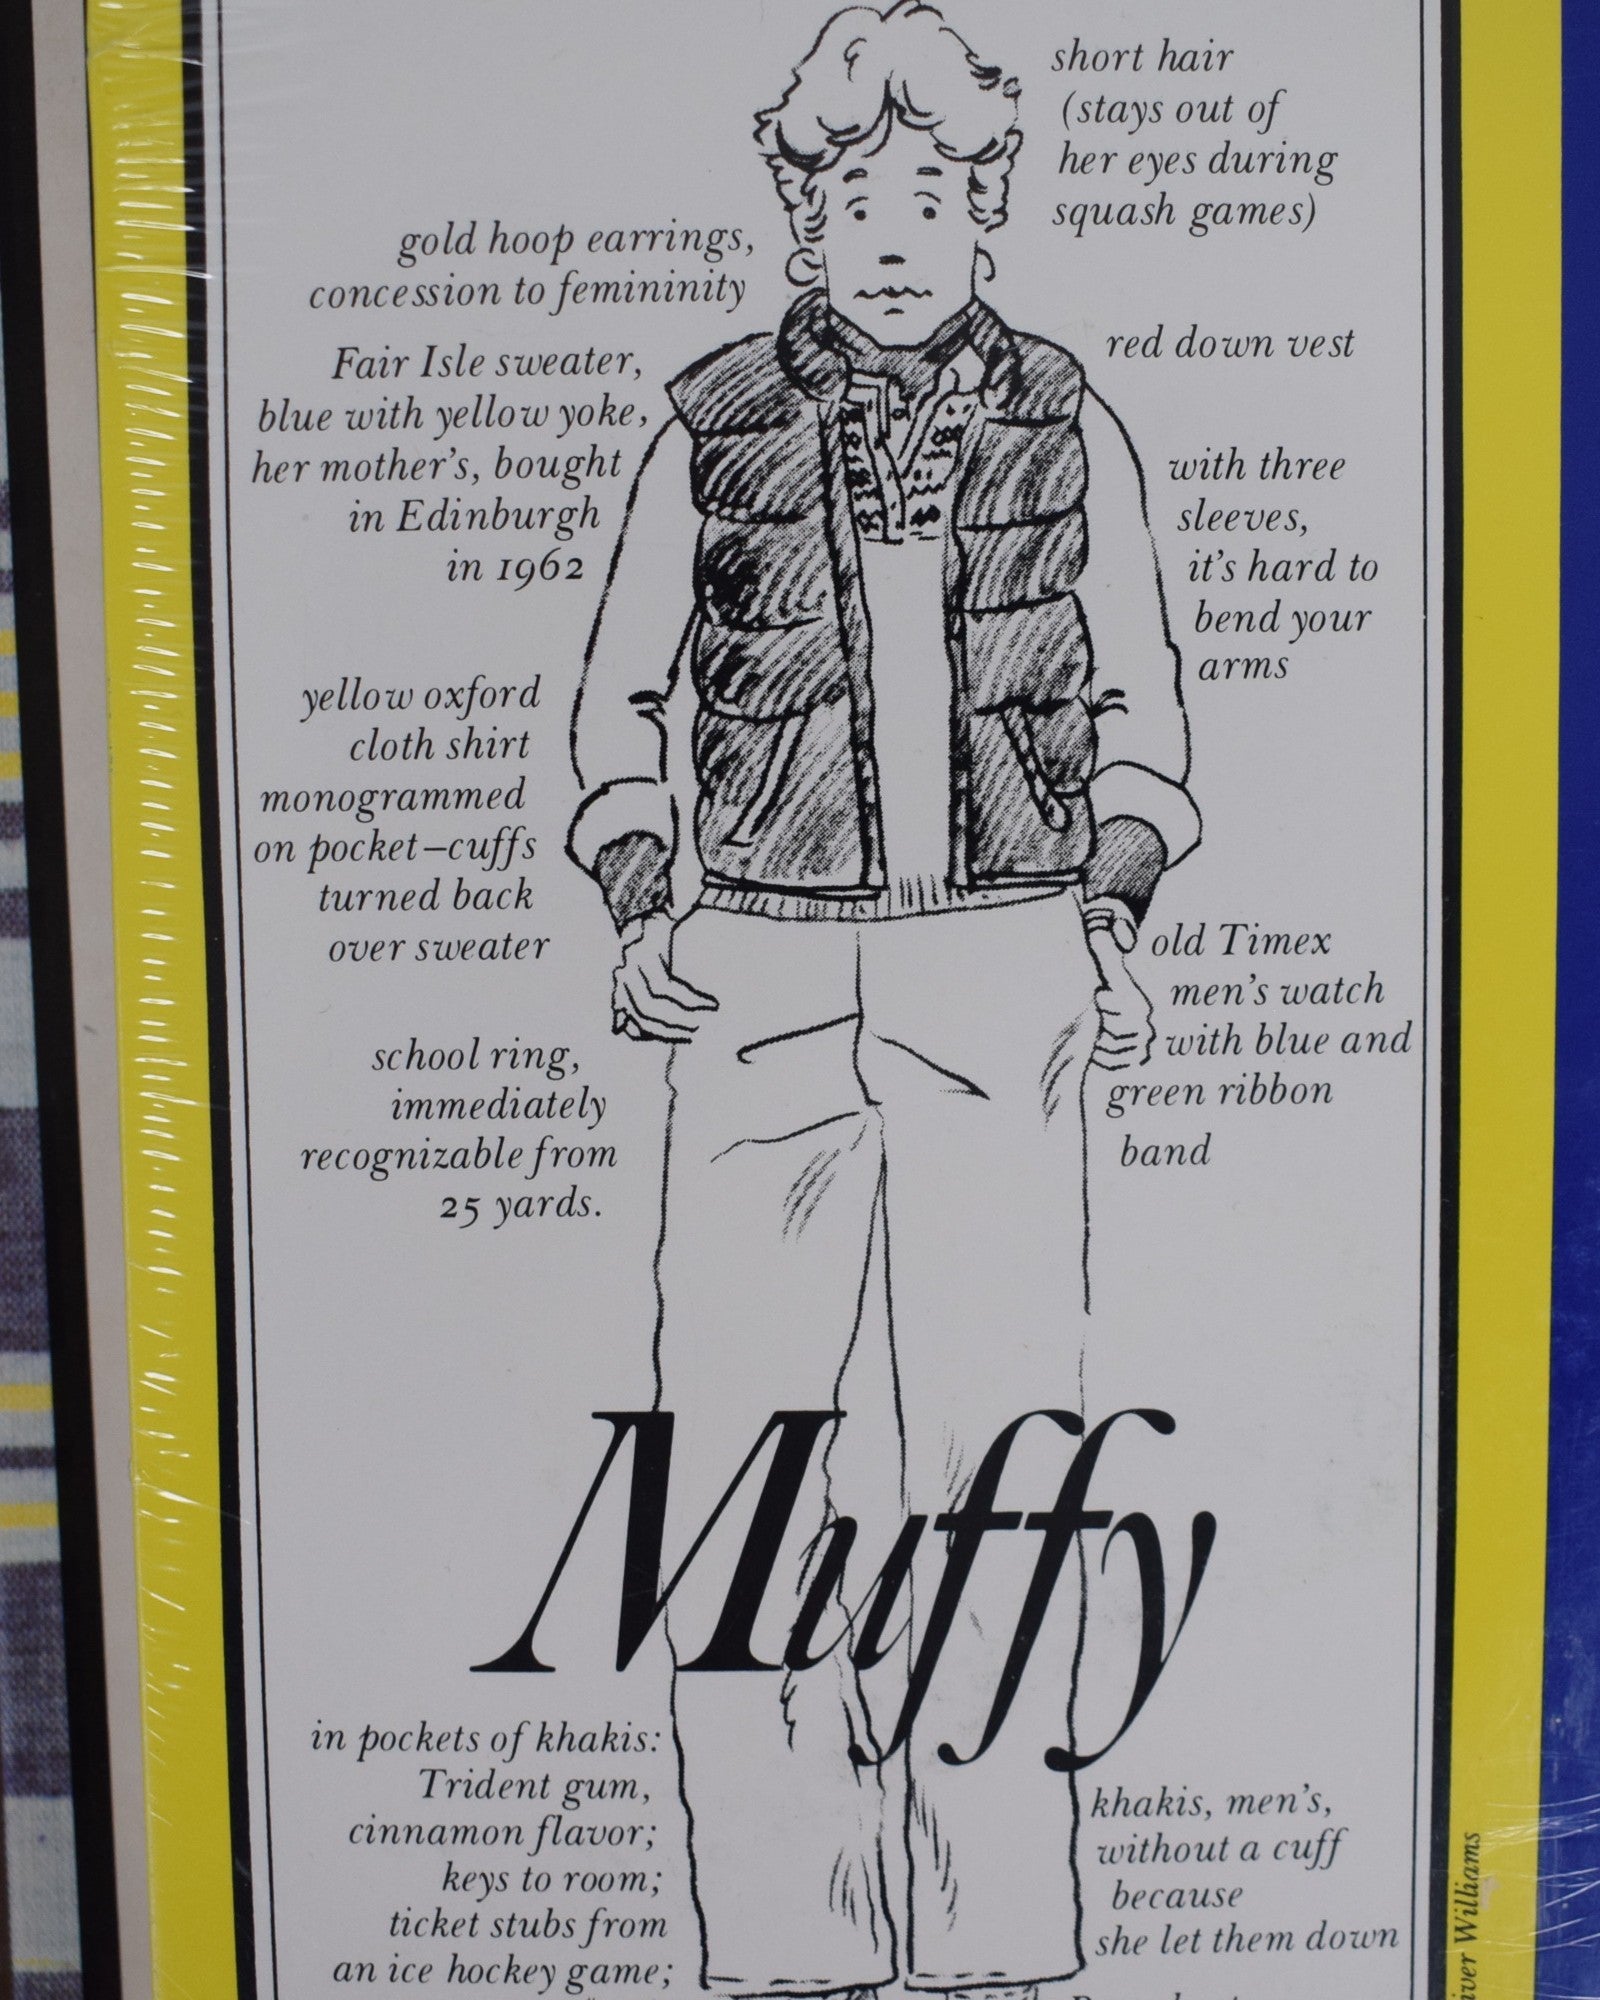 short hair
(stays out of
her eyes during
squash games)
gold hoop earrings,
concession to femininity
red down vest
Fair Isle sweater,
blue with yellow yoke,
her mother's, bought
in Edinburgh
in 1962
with three
sleeves,
it's hard to
bend your
arms
yellow oxford
cloth shirt
monogrammed
on pocket–cuffs
turned back
over sweater
old Timex
men's watch
with blue and
green ribbon
band
school ring,
immediately
recognizable from
25 yards.
Muffy
in pockets of khakis:
Trident gum,
cinnamon flavor;
keys to room;
ticket stubs from
an ice hockey game;
khakis, men's,
without a cuff
because
she let them down
Williams